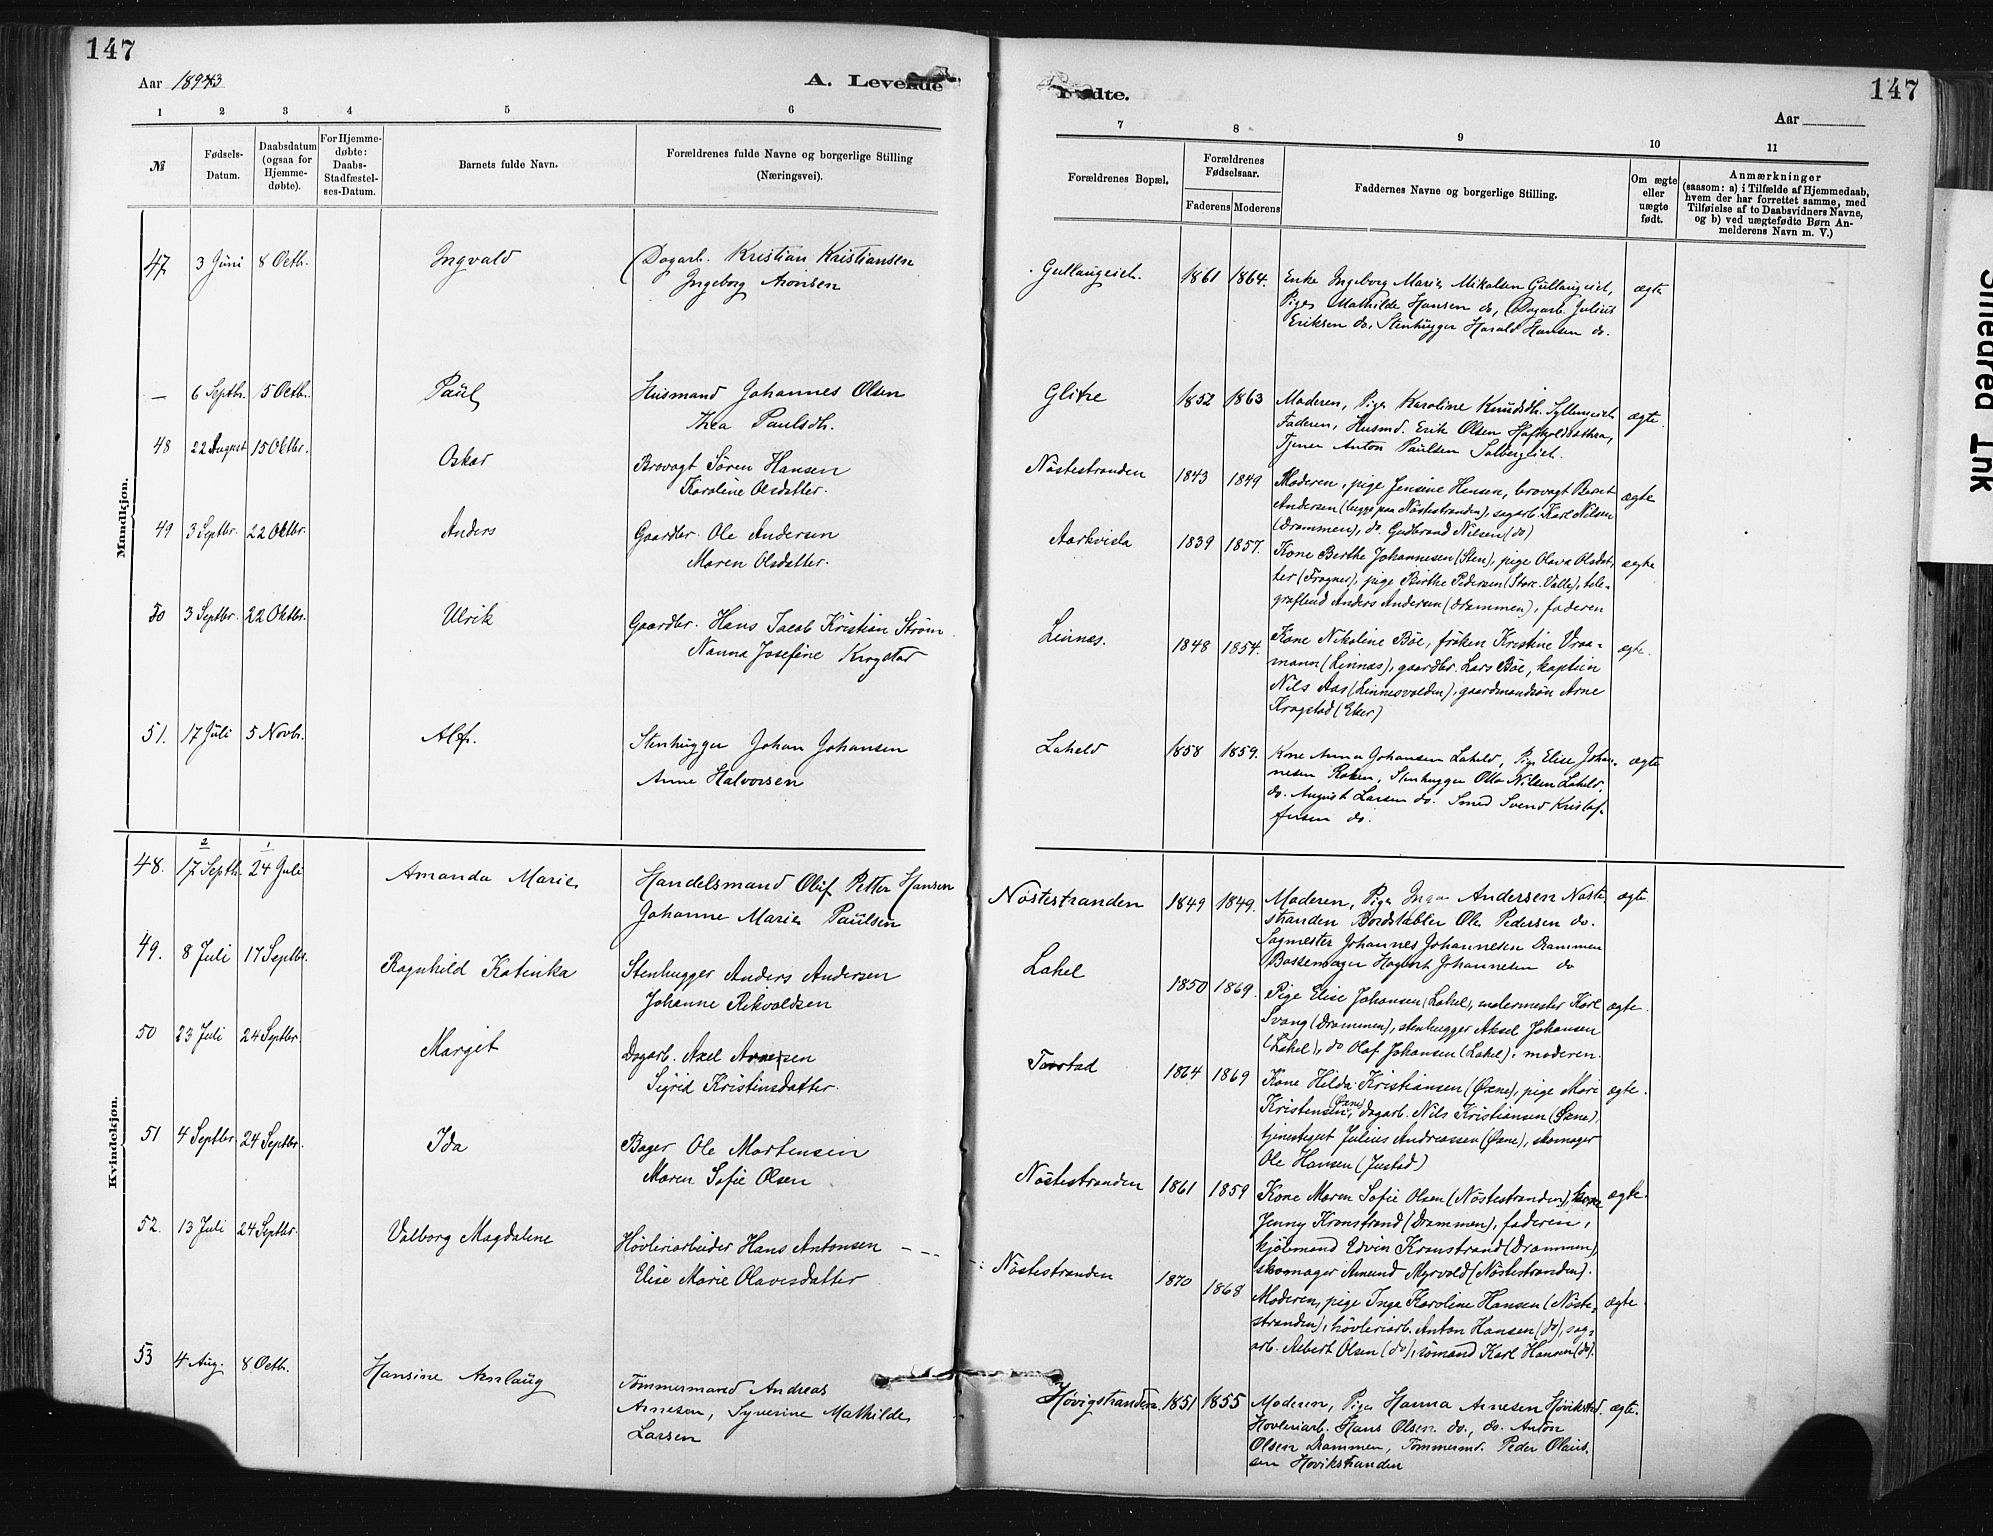 147
Aar 1893
A. Levende
1 2 3 4 5 6
№
Fødsels-Datum.
Daabsdatum (ogsaa for Hjemmedøbte).
For Hjemmedøbte: Daabs-Stadfæstelses-Datum.
Barnets fulde Navn.
Forældrenes fulde Navne og borgerlige Stilling (Næringsvei).
Mandkjøn.
47 3 Juni 8 Octb. Ingvald Dagarb. Kristian Kristiansen
Ingeborg Aronsen
— 6 Septbr. 5 Octb. Paul Husmand Johannes Olsen
Thea Paulsdh.
48 22 August 15 Oktbr. Oskar Brovagt Sören Hansen
Karoline Olsdatter.
49 3 Septbr. 22 Oktbr. Anders Gaardbr. Ole Andersen
Maren Olsdatter.
50 3 Septbr. 22 Oktbr. Ulrik Gaardbr. Hans Jacob Kristian Ström
Nanna Josefine Krogstad
51. 17 Juli 5 Novb. Alf. Stenhugger Johan Johansen
Anne Halvorsen
Kvindekjøn.
2 1
48. 17 Septb. 24 Juli Amanda Marie Handelsmand Oluf Petter Hansen
Johanne Marie Paulsen
49. 8 Juli 17 Septbr. Ragnhild Katinka Stenhugger Anders Andersen
Johanne Rikvaldsen
50 23 Juli 24 Septbr. Margit Dagarb. Axel Arnesen
Sigrid Kristinsdatter.
51 4 Septbr. 24 Septbr. Ida Bager Ole Martensen
Maren Sofie Olsen
52. 13 Juli 24 Septbr. Valborg Magdalene Hövleriarbeider Hans Antonsen
Elise Marie Olavesdatter
53 4 Aug. 8 Octb. Hansine Aslaug Tömmermand Andreas
Arnesen, Syverine Mathilde
Larsen
147
Fødte.
Aar
7 8 9 10 11
Forældrenes Bopæl.
Forældrenes Fødselsaar.
Faderens Moderens
Faddernes Navne og borgerlige Stilling.
Om ægte eller uægte født.
Anmærkninger
(saasom: a) i Tilfælde af Hjemmedaab,
hvem der har forrettet samme, med
Tilføielse af to Daabsvidners Navne,
og b) ved uægtefødte Børn Anmelderens Navn m. V.)
Gullaugeiet. 1861 1864. Enke Ingeborg Marie Mikalsen Gullaugeiet, ægte
Pige Mathilde Hansen do, Dagarb. Julius
Eriksen do, Stenhugger Harald Hansen do.
Glitre 1852 1863 Moderen, Pige Karoline Knudsdh. ægte.
Faderen, Husmd. Erik Olsen
Tjener Anton Paulsen Solbergeiet.
Nöstestranden 1843 1849 Moderen, pige Jensine Hansen, brovagt Bernt ægte
Andersen (begge paa Nöstestranden), sagarb. Karl Nilsen
(Drammen), do Gudbrand Nilsen (do)
Aarkvisla 1839 1857. Kone Berthe Johannesen (Sten), pige Olava Olsdat- ægte
ter (Fragnes), pige Birthe Pedersen (Store-Valle), tele-
grafbud Anders Andersen (Drammen), faderen
Linnæs. 1848 1854. Kone Nikoline Böe, fröken Kristine Vraa- ægte.
mann (Linnæs), gaardbr. Lars Böe, kaptein
Nils Aas (Linnesvolden), gaardmandsön Arne
Krogstad (Eker)
Laheld 1858 1859. Kone Anna Johansen Laheld, Pige Elise Johan- ægte
nesen, Stenhugger Otto Nilsen Laheld,
do. August Larsen do. Smed Svend Kristof-
fersen do.
Nöstestranden 1849 1849. Moderen, Pige Inga Andersen Nöste- ægte.
stranden Bordstabler Ole Pedersen do.
Sagmester Johannes Johannesen Drammen
Johannesen do
Lahel 1850 1869. Pige Elise Johansen (Lahel), malermester Karl ægte.
Svang (Drammen), stenhugger Aksel Johansen
(Lahel), do Olaf Johansen (Lahel), moderen.
Tverstad 1864 1869 Kone Hilda Kristiansen (Öxne), pige Mari ægte.
Kristensen (Öxne), dagarb. Nils Kristiansen (Öxne),
tjenestegut Julius Andreassen (Öxne), skomager
Ole Hansen (Justad)
Nöstestranden 1861 1859 Kone Maren Sofie Olsen (Nöstestranden), kone ægte.
Jenny Kronstrand (Drammen), faderen,
kjölemand Edvin Kronstrand (Drammen),
skomager Amund Myrvold (Nöstestranden).
Nöstestranden 1870 1868 Moderen, pige Inga Karoline Hansen (Nöste- ægte.
stranden), hövleriarb. Anton Hansen (do), sag-
arb. Albert Olsen (do), sömand Karl Hansen (do).
Hövigstranden. 1851 1855 Moderen, Pige Hanna Arnesen Hövikstrd. ægte.
Hövleriarb. Hans Olsen do., do. Anton
Olsen Drammen, Tömmermd. Peder Olaus-
sen Hövikstranden